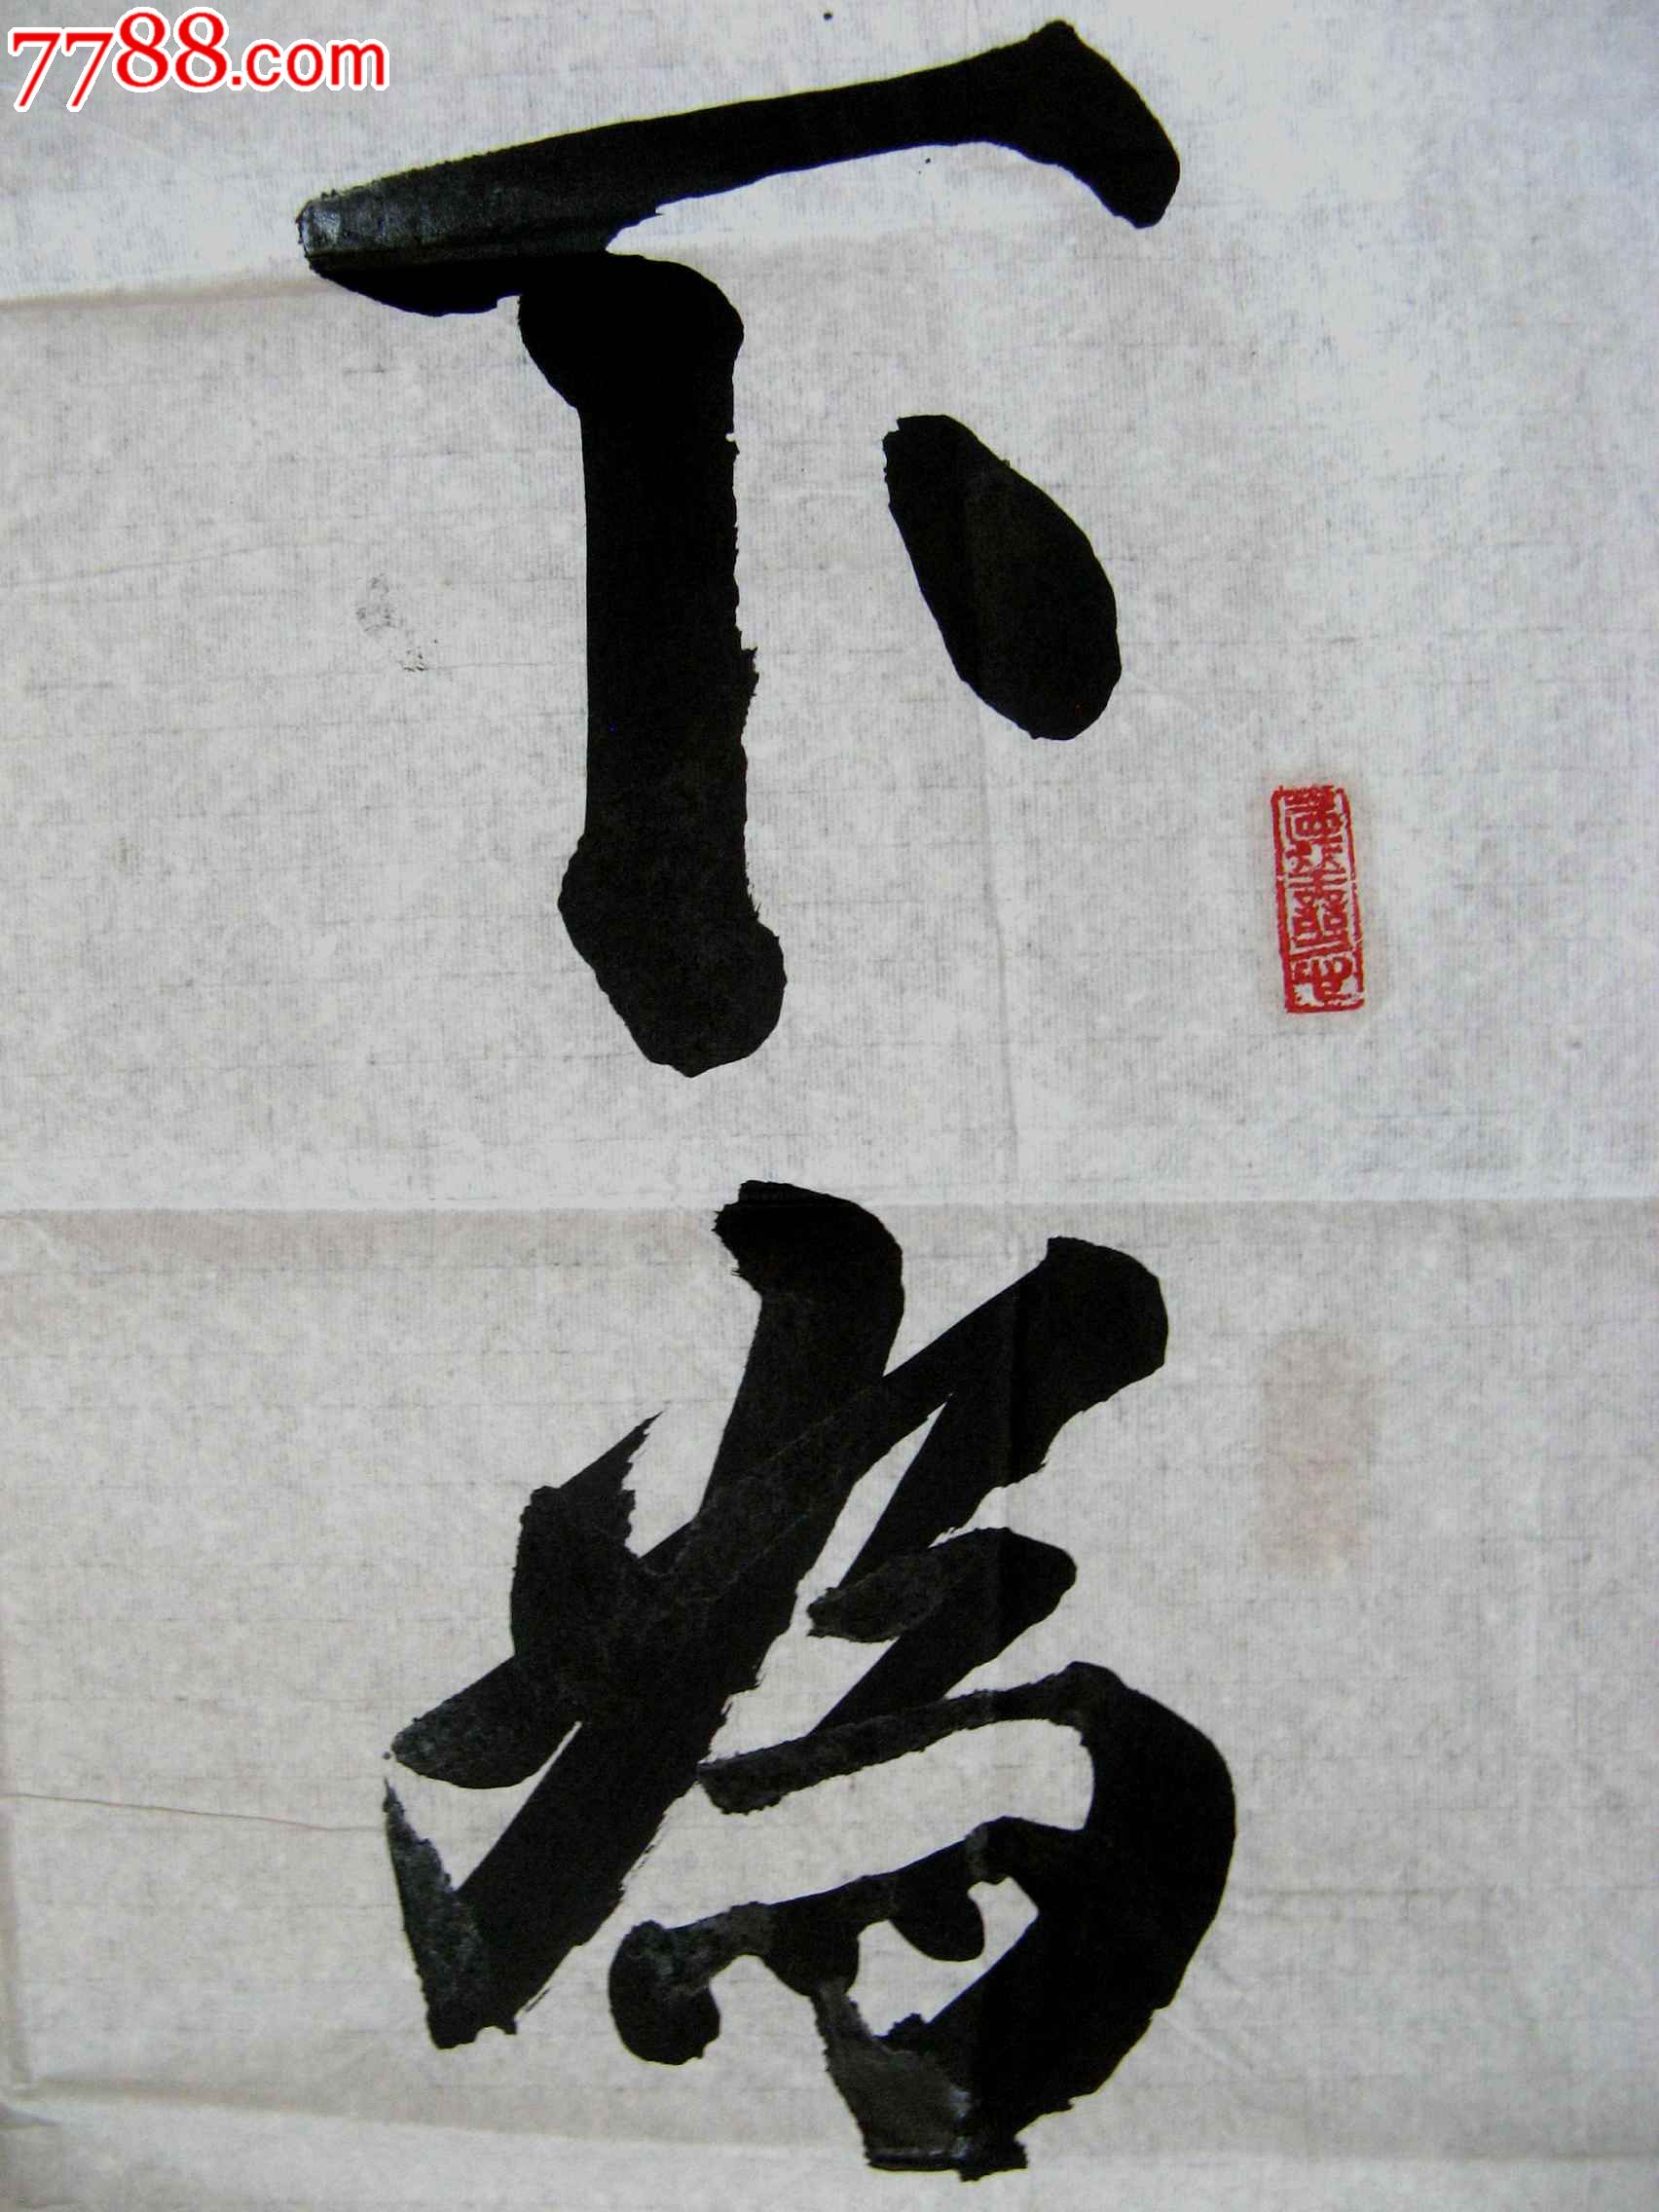 7788.com
下
為